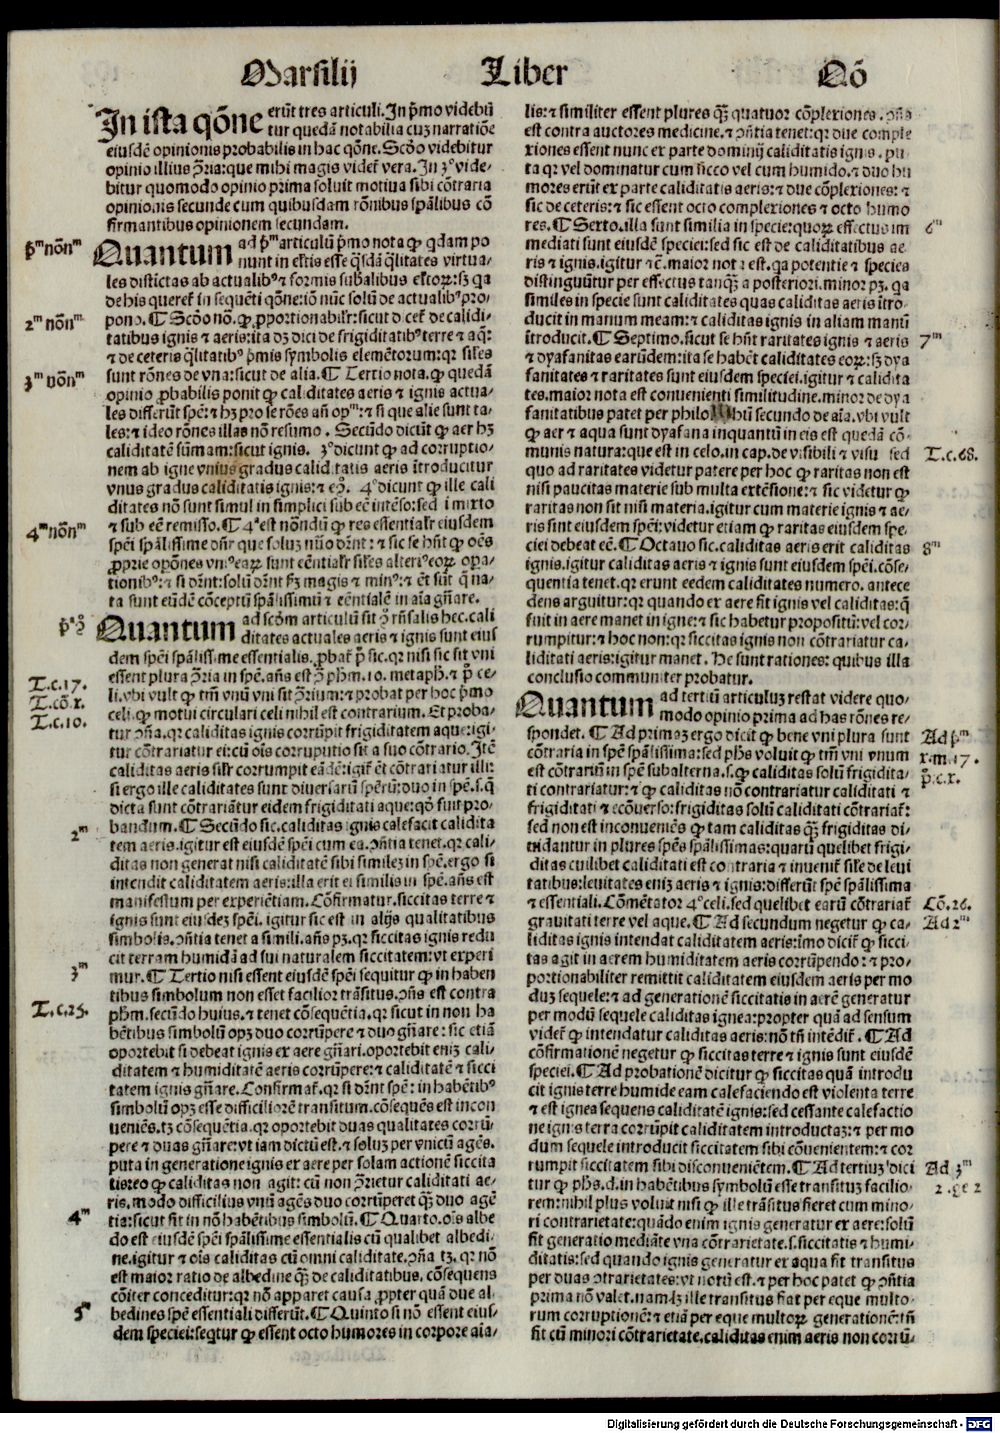 Marsilij Liber Qō
In ista qōne erūt tres articuli. In pꝛmo videbū
tur quedā notabilia cuz narratiōe
eiusdē opinionis probabilis in hac qōne. Scōo videbitur
opinio illius ꝯ̄ria: que mihi magis videt̄ vera. In 3º vide-
bitur quomodo opinio prima soluit motiua sibi cōtraria
opinionis secunde cum quibusdam rōnibus spālibus cō
firmantibus opinionem secundam.
p̄ᵐ nōnᵐ
Quantum ad p̄ᵐ articulū p̄mo nota ꝙ qdam po
nunt in
les distīctas ab actualibꝰ ⁊ formis subālibus
de his
2ᵐ nōnᵐ
pono. ¶ Scōo nō. ꝙ ꝓportionabilr̄: sicut
tatibus ignis ⁊ aeris: ita dꝫ dici de frigiditatibꝰ terre ⁊ aq̄:
⁊ de ceteris q̄litatibꝰ p̄mis symbolis elemētorum: qꝛ siles
3ᵐ nōnᵐ
sunt rōnes de vna: sicut de alia. ¶ Tertio nota. ꝙ quedā
opinio ꝓbabilis ponit ꝙ caliditates aeris ⁊ ignis actua-
les differūt spē: ⁊ hꝫ pro se rōes añ opᵐ: ⁊ si que alie sunt ta-
les: ⁊ ideo rōnes illas nō resumo. Secūdo dicūt ꝙ aer hꝫ
caliditatē sūmam: sicut ignis. 3º dicunt ꝙ ad corruptio-
nem ab igne vnius gradus caliditatis aeris ītroducitur
vnus gradus caliditatis ignis: ⁊ eꝯ̄. 4º dicunt ꝙ ille cali
ditates nō sunt simul in simplici sub eē intēso: sed i mixto
4ᵐ nōnᵐ
⁊ sub eē remisso. ¶ 4ª est nōndū ꝙ res essentialr̄ eiusdem
spēi spālissime dn̄r que soluz nūo dr̄nt: ⁊ sic se hn̄t ꝙ oēs
ꝓprie opōnes vniꝰ eaꝝ sunt eēntialr̄ siles alteriꝰ eoꝝ opa-
tionibꝰ: ⁊ si dr̄nt: solū dr̄nt fꝫ magis ⁊ minꝰ: ⁊ ēt sūt q̄ na-
ta sunt eūdē cōceptū spālissimū ⁊ eēntialē in aīa gn̄are.
Quantum ad scōm articulū sit ꝯ̄ rn̄salis hec. cali
ditates actuales aeris ⁊ ignis sunt eius
dem spēi spālissime essentialis. ꝓbat̄ p̄ sic. qꝛ nisi sic sit vni
T.c.17.
essent plura ꝯ̄ria in spē. añs est ꝯ̄ phm. 10. metaph. ⁊ p̄ ce-
T.cō x.
li. vbi vult ꝙ tm̄ vnū vni sit ꝯ̄rium: ⁊ probat per hoc p̄mo
T.c.10.
celi. ꝙ motui circulari celi nihil est contrarium. Et proba-
tur ꝯ̄ña. qꝛ caliditas ignis corrūpit frigiditatem aque: igi-
tur cōtrariatur ei: cū oīs corruptio sit a suo cōtrario. Itē
caliditas aeris silr̄ corrumpit eādē: igit̄ ēt cōtrariatur illi:
si ergo ille caliditates sunt diuersarū spērū: duo in spē. s. q̄
dicta sunt cōtrariātur eidem frigiditati aque: qō fuit pro-
2ᵐ
bandum. ¶ Secūdo sic. caliditas ignis calefacit calidita
tem aeris. igitur est eiusdē spēi cum ea. ꝯn̄tia tenet. qꝛ cali-
ditas non generat nisi caliditatē sibi similez in spē. ergo si
intendit caliditatem aeris: illa erit ei similis in spē. añs est
manifestum per experiētiam. Cōfirmatur. siccitas terre ⁊
ignis sunt eiusdez spēi. igitur sic est in alijs qualitatibus
simbolis. ꝯn̄tia tenet a simili. añs pꝫ. qꝛ siccitas ignis redu
cit terram humidā ad sui naturalem siccitatem: vt experi
3ᵐ
mur. ¶ Tertio nisi essent eiusdē spēi sequitur ꝙ in haben
tibus simbolum non esset facilior trāsitus. ꝯn̄s est contra
T.c.25.
phm. secūdo huius. ⁊ tenet cōsequētia. qꝛ sicut in non ha
bētibus simbolū opꝫ duo corrūpere ⁊ duo gn̄are: sic etiā
oportebit si debeat ignis ex aere gn̄ari. oportebit eniꝫ cali-
ditatem ⁊ humiditatē aeris corrūpere: ⁊ caliditatē ⁊ sicci
tatem ignis gn̄are. Confirmat̄. qꝛ si dr̄nt spē: in habētibꝰ
simbolū opꝫ esse difficiliorē transitum. cōsequēs est incon
ueniēs. tꝫ cōsequētia. qꝛ oportebit duas qualitates corrū-
pere ⁊ duas gn̄are: vt iam dictū est. ⁊ soluz per vnicū agēs.
puta in generatione ignis ex aere per solam actionē siccita
tis: eo ꝙ caliditas non agit: cū non ꝯ̄rietur caliditati ae-
ris. modo difficilius vnū agēs duo corrūperet q̄ꝫ duo agē
4ᵐ
tia: sicut fit in nō habētibus simbolū. ¶ Quarto. oīs albe
do est eiusdē spēi spālissime essentialis cū qualibet albedi-
ne. igitur ⁊ oīs caliditas cū omni caliditate. ꝯ̄ña tꝫ. qꝛ nō
est maior ratio de albedine q̄ꝫ de caliditatibus. cōsequens
cōiter conceditur: qꝛ nō apparet causa ꝓpter quā due al-
5ᵐ
bedines spē essentiali differūt. ¶ Quinto si nō essent eius-
dem speciei: seqtur ꝙ essent octo humores in corpore aīa-
lis: ⁊ similiter essent plures q̄ꝫ quatuor cōplexiones. ꝯ̄ña
est contra auctores medicine. ⁊ ꝯn̄tia tenet: qꝛ due comple
xiones essent nunc ex parte dominij caliditatis ignis. pu-
ta qꝛ vel dominatur cum sicco vel cum humido. ⁊ duo hu
mores erūt ex parte caliditatis aeris: ⁊ due cōplexiones: ⁊
sic de ceteris: ⁊ sic essent octo complexiones ⁊ octo humo
6ᵐ
res. ¶ Sexto. illa sunt similia in specie: quoꝝ effectus im
mediati sunt eiusdē speciei: sed sic est de caliditatibus ae-
ris ⁊ ignis. igitur ⁊c̄. maior nota est. qa potentie ⁊ species
distinguūtur per effectus tanq̄ꝫ a posteriori. minor pꝫ. qa
similes in specie sunt caliditates quas caliditas aeris ītro-
ducit in manum meam: ⁊ caliditas ignis in aliam manū
7ᵐ
ītroducit. ¶ Septimo. sicut se hn̄t raritates ignis ⁊ aeris
⁊ dyafanitas earūdem: ita se habēt caliditates eoꝝ: sꝫ dya
fanitates ⁊ raritates sunt eiusdem speciei. igitur ⁊ calidita
tes. maior nota est conuenienti similitudine. minor de dya
fanitatibus patet per secundo de aīa. vbi vult
ꝙ aer ⁊ aqua sunt dyafana inquantū in eis est quedā cō-
T.c.68.
munis natura: que est in celo. in cap. de visibili ⁊ visu sed
quo ad raritates videtur patere per hoc ꝙ raritas non est
nisi paucitas materie sub multa extēsione: ⁊ sic videtur ꝙ
raritas non sit nisi materia. igitur cum materie ignis ⁊ ae-
ris sint eiusdem spēi: videtur etiam ꝙ raritas eiusdem spe-
8ᵐ
ciei debeat eē. ¶ Octauo sic. caliditas aeris erit caliditas
ignis. igitur caliditas aeris ⁊ ignis sunt eiusdem spēi. cōse-
quentia tenet. qꝛ erunt eedem caliditates numero. antece
dens arguitur: qꝛ quando ex aere fit ignis vel caliditas: q̄
fuit in aere manet in igne: ⁊ sic habetur propositū: vel cor-
rumpitur: ⁊ hoc non: qꝛ siccitas ignis non cōtrariatur ca-
liditati aeris: igitur manet. He sunt rationes: quibus illa
conclusio communiter probatur.
Quantum ad tertiū articuluz restat videre quo-
modo opinio prima ad has rōnes re-
Ad p̄ᵐ
spondet. ¶ Ad primaꝫ ergo dicit ꝙ bene vni plura sunt
x.m.17.
cōtraria in spē spālissima: sed phs voluit ꝙ tm̄ vni vnum
p̄.c.x.
est cōtrariū in spē subalterna. s. ꝙ caliditas solū frigidita-
ti contrariatur: ⁊ ꝙ caliditas nō contrariatur caliditati ⁊
frigiditati ⁊ ecōuerso: frigiditas solū caliditati cōtrariat̄:
sed non est inconueniēs ꝙ tam caliditas q̄ꝫ frigiditas di-
uidantur in plures spēs spālissimas: quarū quelibet frigi-
ditas cuilibet caliditati est contraria ⁊ inuenit̄ sile de leui
tatibus: leuitates eniꝫ aeris ⁊ ignis: differūt spē spālissima
Cō.26.
⁊ essentiali. Cōmētator 4º celi. sed quelibet earū cōtrariat̄
Ad 2ᵐ
grauitati terre vel aque. ¶ Ad secundum negetur ꝙ ca-
liditas ignis intendat caliditatem aeris: īmo dicit̄ ꝙ sicci-
tas agit in aerem humiditatem aeris corrūpendo: ⁊ pro-
portionabiliter remittit caliditatem eiusdem aeris per mo
duꝫ sequele: ⁊ ad generationē siccitatis in aerē generatur
per modū sequele caliditas ignea: propter quā ad sensum
videt̄ ꝙ intendatur caliditas aeris: nō tn̄ intēdit̄. ¶ Ad
cōfirmationē negetur ꝙ siccitas terre ⁊ ignis sunt eiusdē
speciei. ¶ Ad probationē dicitur ꝙ siccitas quā introdu
cit ignis terre humide eam calefaciendo est violenta terre
⁊ est ignea sequens caliditatē ignis: sed cessante calefactio
ne ignis terra corrūpit caliditatem introductaꝫ: ⁊ per mo
dum sequele introducit siccitatem sibi cōuenientem: ⁊ cor
Ad 3ᵐ
rumpit siccitatem sibi disconueniētem. ¶ Ad tertiuꝫ dici
tur ꝙ phs. d. in habētibus symbolū esse transituꝫ facilio-
rem: nihil plus voluit nisi ꝙ ille trāsitus fieret cum mino-
ri contrarietate: quādo enim ignis generatur ex aere: solū
fit generatio mediāte vna cōtrarietate. s. siccitatis ⁊ humi-
ditatis: sed quando ignis generatur ex aqua fit transitus
per duas ꝯtrarietates: vt notū est. ⁊ per hoc patet ꝙ ꝯn̄tia
prima nō valet. nam lꝫ ille transitus fiat per eque multo-
rum corruptionē: ⁊ etiā per eque multoꝝ generationē: tn̄
fit cū minori cōtrarietate. caliditas enim aeris non corrū-
Digitalisierung gefördert durch die Deutsche Forschungsgemeinschaft - DFG